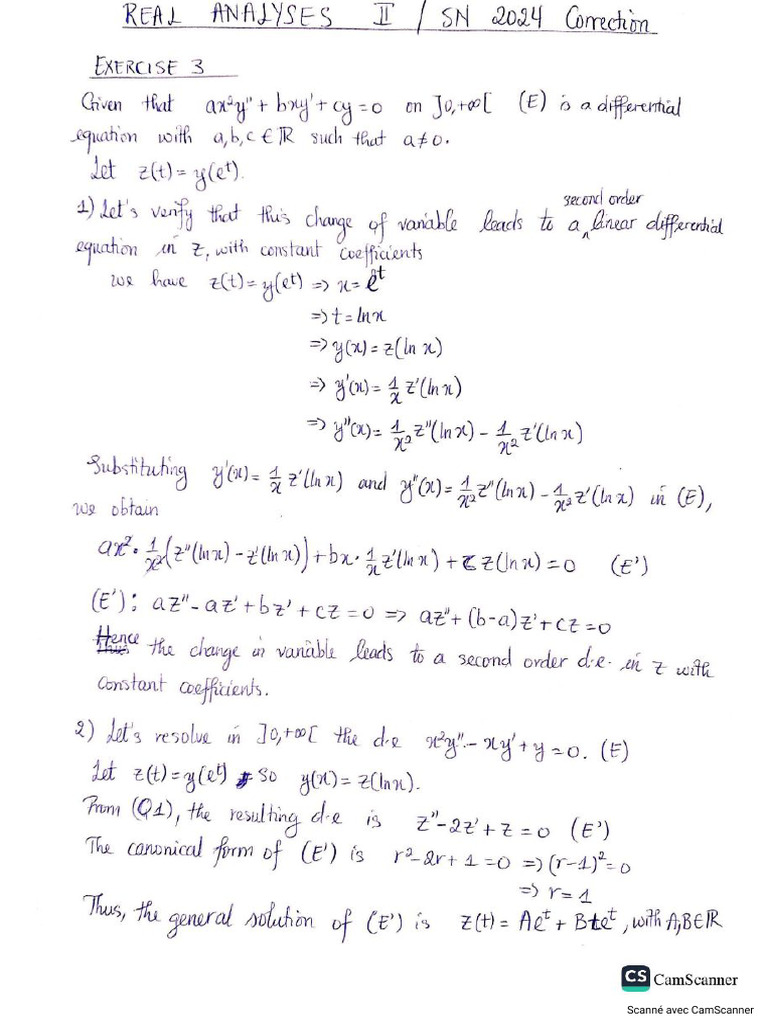 REAL ANALYSES II / SN 2024 Correction
EXERCISE 3
Given that ax²y" + bxy' + cy = 0 on ]0,+∞[ (E) is a differential
equation with a, b, c ∈ ℝ such that a ≠ 0.
Let z(t) = y(eᵗ).
1) Let's verify that this change of variable leads to a second order linear differential
equation in z, with constant coefficients
we have z(t) = y(eᵗ) => x = eᵗ
=> t = ln x
=> y(x) = z(ln x)
=> y'(x) = 1/x z'(ln x)
=> y"(x) = 1/x² z"(ln x) - 1/x² z'(ln x)
Substituting y'(x) = 1/x z'(ln x) and y"(x) = 1/x² z"(ln x) - 1/x² z'(ln x) in (E),
we obtain
ax² · 1/x² (z"(ln x) - z'(ln x)) + bx · 1/x z'(ln x) + c z(ln x) = 0 (E')
(E'): az" - az' + bz' + cz = 0 => az" + (b-a)z' + cz = 0
Hence the change in variable leads to a second order d.e. in z with
constant coefficients.
2) Let's resolve in ]0,+∞[ the d.e x²y" - xy' + y = 0. (E)
Let z(t) = y(eᵗ) So y(x) = z(ln x).
From (Q1), the resulting d.e is z" - 2z' + z = 0 (E')
The canonical form of (E') is r² - 2r + 1 = 0 => (r-1)² = 0
=> r = 1
Thus, the general solution of (E') is z(t) = Aeᵗ + Bteᵗ, with A,B∈ℝ
CS CamScanner
Scanné avec CamScanner